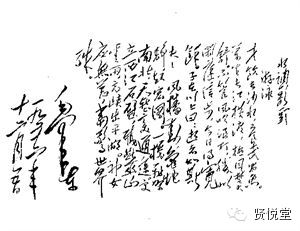 水调歌头
游泳
才饮长沙水又食武昌鱼
万里长江横渡极目楚
天舒不管风吹浪打胜似
闲庭信步今日得宽
馀子在川上曰逝者如斯
夫 风樯动龟蛇
静起宏图一桥飞架
南北天堑变通途更
立西江石壁截断巫山
云雨高峡出平湖神女
应无恙当惊世界
殊
毛泽东
一九五六年
十二月五日
贤悦堂